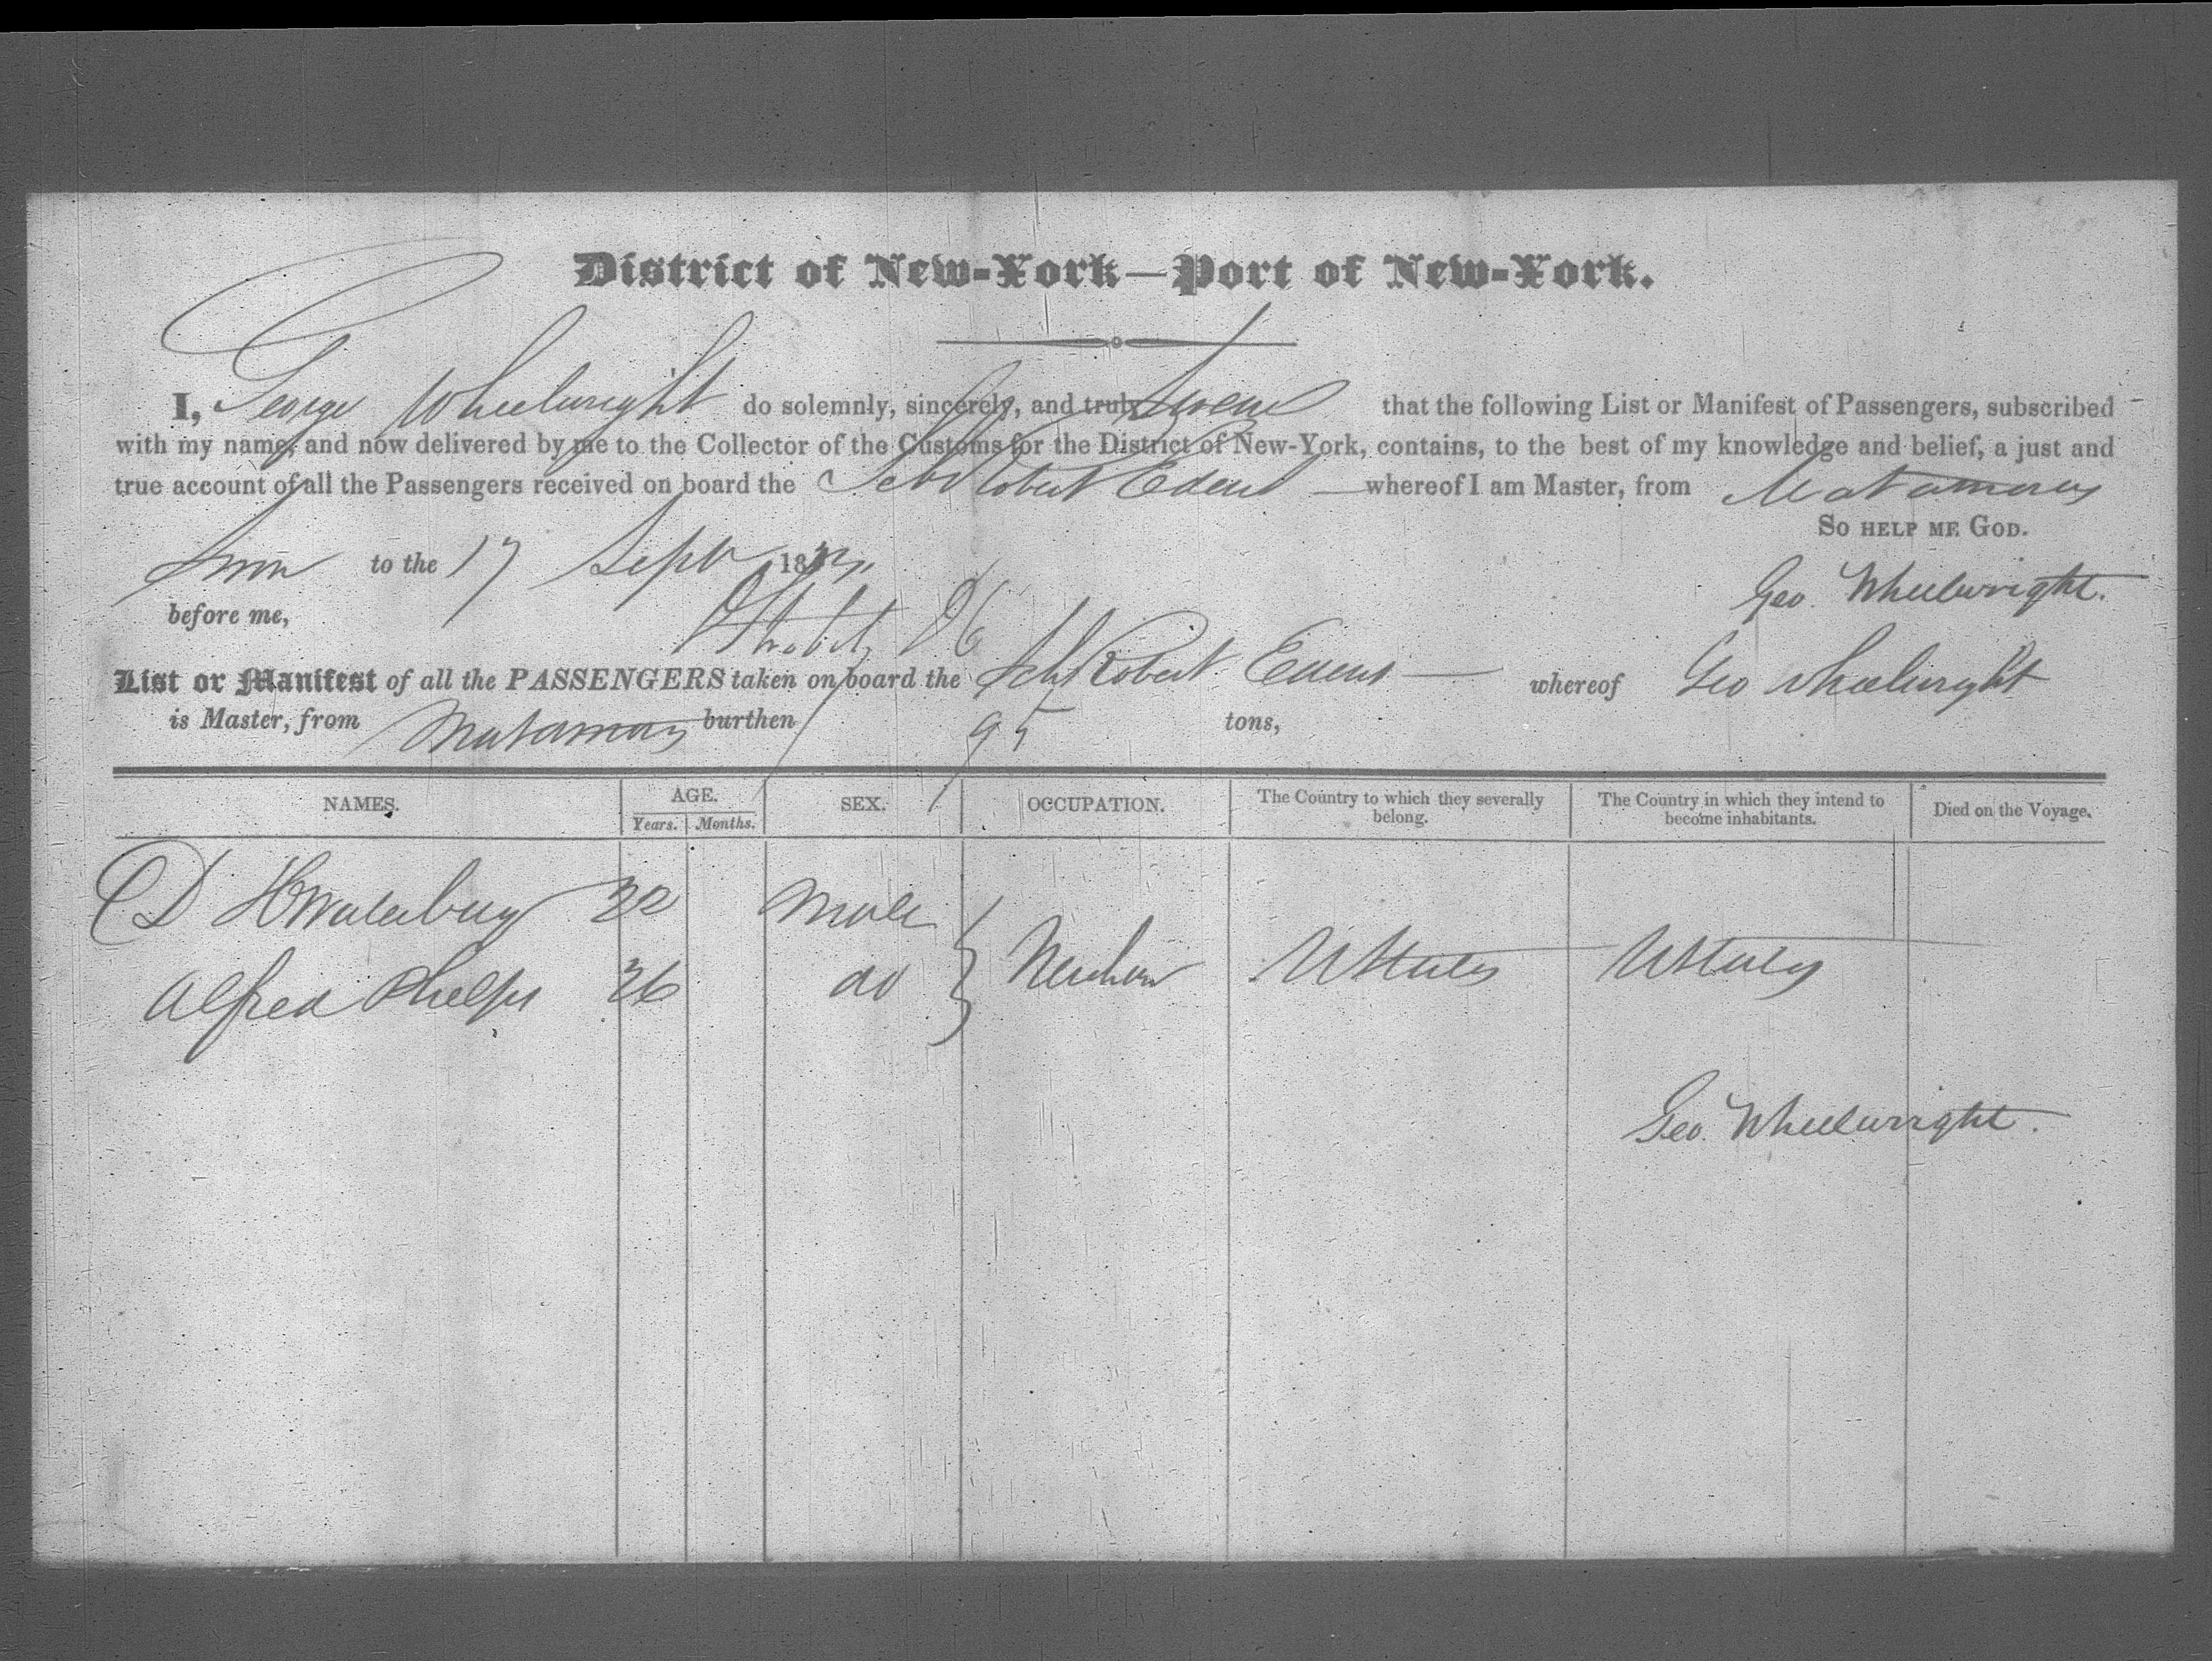 District of New-York—Port of New-York.
I, George Wheelwright do solemnly, sincerely, and truly Swear that the following List or Manifest of Passengers, subscribed
with my name, and now delivered by me to the Collector of the Customs for the District of New-York, contains, to the best of my knowledge and belief, a just and
true account of all the Passengers received on board the Sch Robert Edens whereof I am Master, from Matamoras
So help me God.
to the 17 Sept 18
Geo. Wheelwright.
before me,
List or Manifest of all the PASSENGERS taken on board the Sch Robert Edens whereof Geo Wheelwright
is Master, from Matamoras burthen 95 tons,
NAMES. AGE. SEX. OCCUPATION. The Country to which they severally belong. The Country in which they intend to become inhabitants. Died on the Voyage.
Years. Months.
D H Waterbury 32 Male
Alfred Phelps 26 do } Merchan UStates UStates
Geo. Wheelwright.